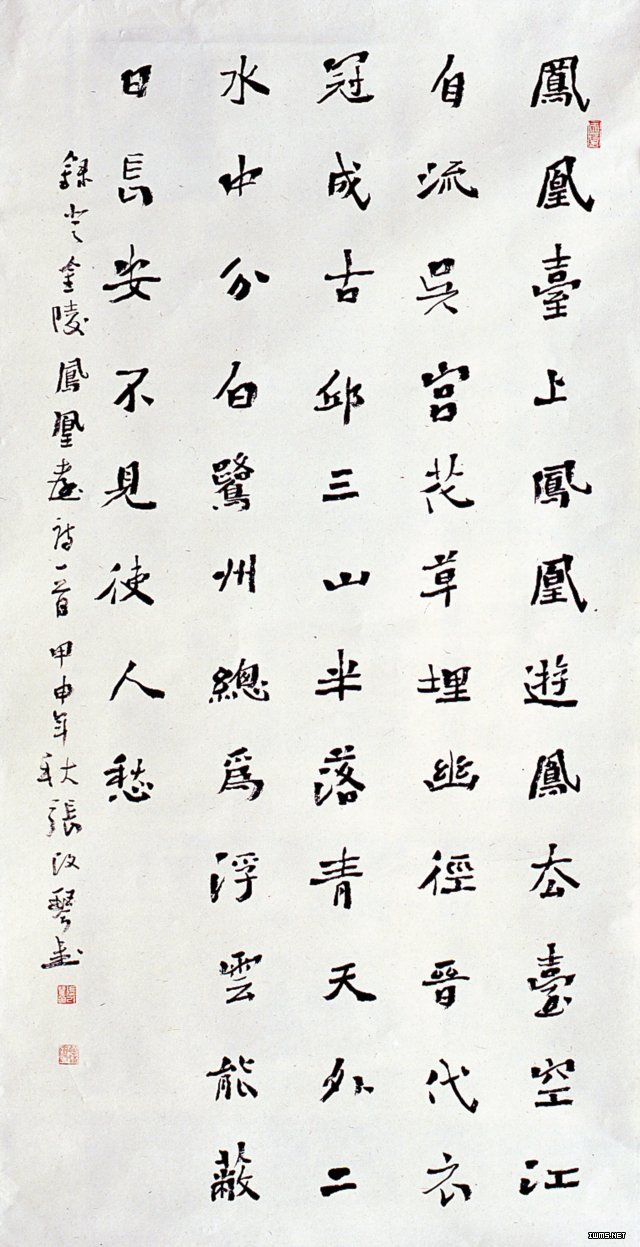 鳳凰臺上鳳凰遊鳳去臺空江
自流吳宮花草埋幽徑晉代衣
冠成古邱三山半落青天外二
水中分白鷺州總爲浮雲能蔽
日長安不見使人愁
錄登金陵鳳凰臺詩一首甲申年秋張汝琴書
IWMS.NET